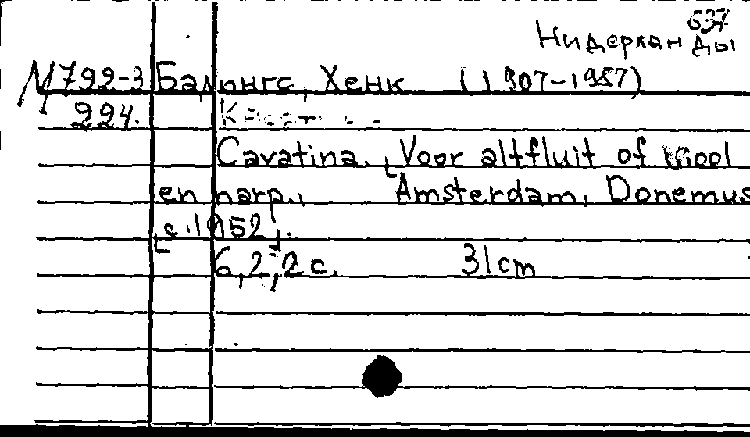 637
Нидерланды
М792-3 Бадингс, Хенк (1907-1987)
224.
Cavatina. Voor altfluit of viool
en harp., Amsterdam, Donemus
[c.1952].
6,2,2 c. 31cm